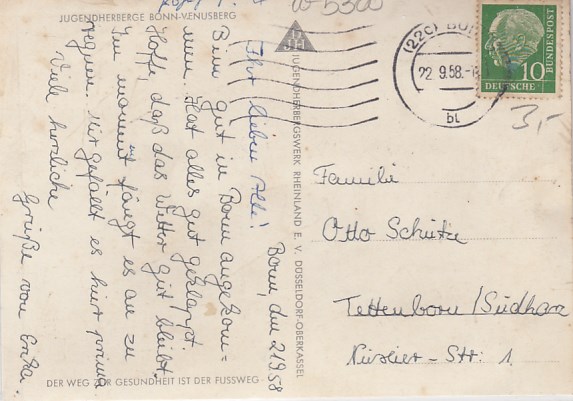 JUGENDHERBERGE BONN-VENUSBERG
W-5300
Bonn, den 21.9.58
Ihr lieben Alle!
Bin gut in Bonn angekom-
men. Hat alles gut geklappt.
Hoffe daß das Wetter gut bleibt.
Im moment fängt es an zu
regnen. Mir gefällt es hier prima
Viele herzliche
Grüße von
DER WEG ZUR GESUNDHEIT IST DER FUSSWEG
DJH
JUGENDHERBERGSWERK RHEINLAND E. V. DÜSSELDORF-OBERKASSEL
(22c) BO
22.9.58.-
bl
10
DEUTSCHE BUNDESPOST
3,-
Familie
Otto Schütze
Tettenborn/Südharz
Str. 1.